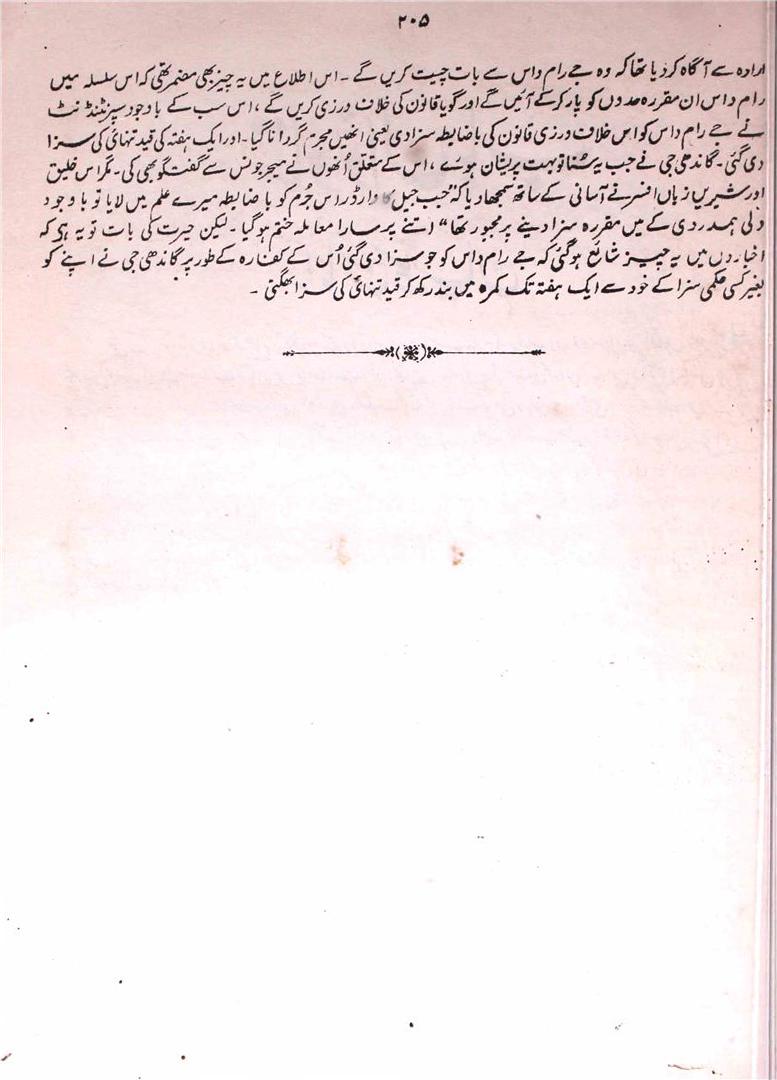 ۲۰۵
ارادہ سے آگاہ کر دیا تھا کہ وہ جے رام داس سے بات چیت کریں گے ۔ اس اطلاع میں یہ چیز بھی مضمر تھی کہ اس سلسلہ میں
رام داس ان مقررہ حدوں کو پار کر کے آئیں گے اور گویا قانون کی خلاف ورزی کریں گے ، اس سب کے باوجود سپرنٹنڈنٹ
نے جے رام داس کو اس خلاف ورزی قانون کی باضابطہ سزا دی یعنی انھیں مجرم گردانا گیا ۔ اور ایک ہفتہ کی قید تنہائی کی سزا
دی گئی ۔ گاندھی جی نے جب یہ سُنا تو بہت پریشان ہوئے ، اس کے متعلق اُنھوں نے میجر جونس سے گفتگو بھی کی ۔ مگر اس خلیق
اور شیریں زباں افسر نے آسانی کے ساتھ سمجھا دیا کہ "جب جیل کا وارڈر اس جُرم کو باضابطہ میرے علم میں لایا تو باوجود
دلی ہمدردی کے میں مقررہ سزا دینے پر مجبور تھا" اتنے پر سارا معاملہ ختم ہو گیا ۔ لیکن حیرت کی بات تو یہ ہی کہ
اخباروں میں یہ چیز شائع ہو گئی کہ جے رام داس کو جو سزا دی گئی اُس کے کفارہ کے طور پر گاندھی جی نے اپنے کو
بغیر کسی حکمی سزا کے خود سے ایک ہفتہ تک کمرہ میں بند رکھ کر قید تنہائی کی سزا بھگتی ۔